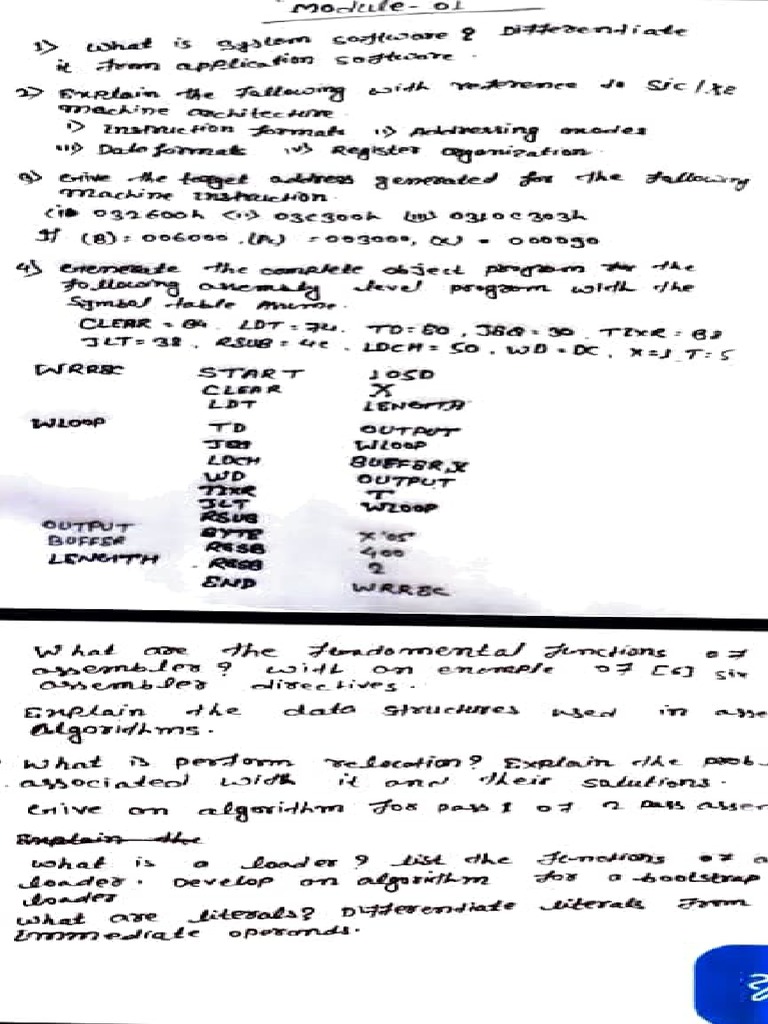 Module - 01
1) What is System Software? Differentiate
it from application software.
2) Explain the following with reference to SIC/XE
machine architecture.
i) Instruction formats ii) Addressing modes
iii) Data formats iv) Register organization.
3) Give the target address generated for the following
machine instruction.
(i) 032600h (ii) 03C300h (iii) 0310C303h
If (B) = 006000, (PC) = 003000, (X) = 000090
4) Generate the complete object program for the
following assembly level program with the
Symbol table
CLEAR = B4. LDT = 74. TD = E0, JEQ = 30. TIXR = B8
JLT = 38. RSUB = 4C. LDCH = 50. WD = DC. X=1 T=5
WRREC START 105D
CLEAR X
LDT LENGTH
WLOOP TD OUTPUT
JEQ WLOOP
LDCH BUFFER,X
WD OUTPUT
TIXR T
JLT WLOOP
RSUB
OUTPUT BYTE X'05'
BUFFER RESB 400
LENGTH RESB 2
END WRREC
What are the fundamental functions of
assembler? with an example of [6] six
assembler directives.
Explain the data structures used in asse
algorithms.
What is perform relocation? Explain the prob
associated with it and their solutions.
Give an algorithm for pass 1 of 2 pass asser
Explain the
What is a loader? List the functions of a
loader. Develop an algorithm for a bootstrap
loader
What are literals? Differentiate literals from
immediate operands.